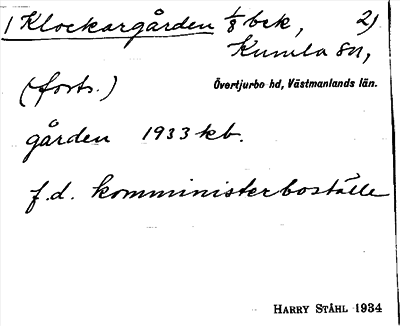 1 Klockargården 1/8 bek, 2)
Kumla sn,
(forts.) Övertjurbo hd, Västmanlands län.
gården 1933 kb.
f.d. komministerboställe
HARRY STÅHL 1934